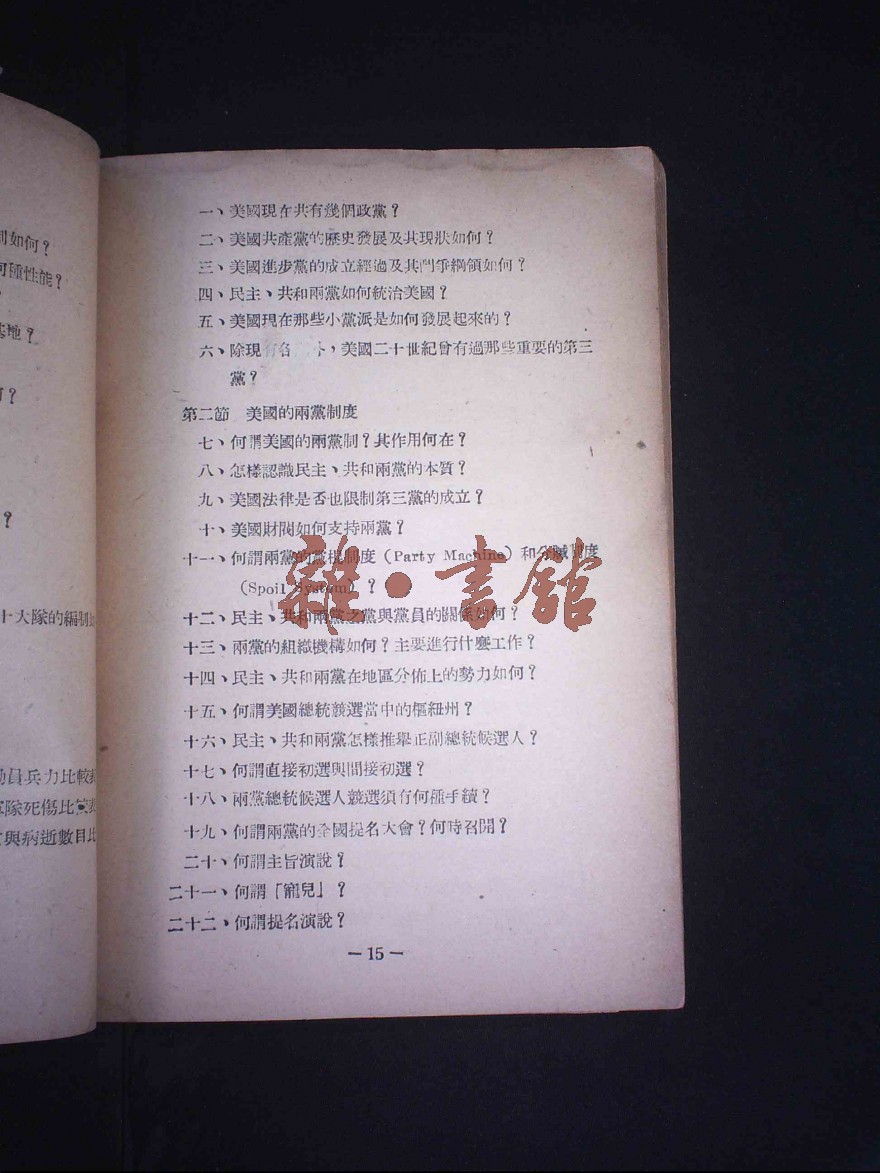 一、美國現在共有幾個政黨？
二、美國共產黨的歷史發展及其現狀如何？
三、美國進步黨的成立經過及其鬥爭綱領如何？
四、民主、共和兩黨如何統治美國？
五、美國現在那些小黨派是如何發展起來的？
六、除現有各　外，美國二十世紀曾有過那些重要的第三
黨？
第二節　美國的兩黨制度
七、何謂美國的兩黨制？其作用何在？
八、怎樣認識民主、共和兩黨的本質？
九、美國法律是否也限制第三黨的成立？
十、美國財閥如何支持兩黨？
十一、何謂兩黨的黨機制度（Party Machine）和分贓制度
（Spoil System）？
十二、民主、共和兩黨之黨與黨員的關係如何？
十三、兩黨的組織機構如何？主要進行什麼工作？
十四、民主、共和兩黨在地區分佈上的勢力如何？
十五、何謂美國總統競選當中的樞紐州？
十六、民主、共和兩黨怎樣推舉正副總統候選人？
十七、何謂直接初選與間接初選？
十八、兩黨總統候選人競選須有何種手續？
十九、何謂兩黨的全國提名大會？何時召開？
二十、何謂主旨演說？
二十一、何謂「寵兒」？
二十二、何謂提名演說？
—15—
如何？
種性能？
基地？
？
？
十大隊的編制
員兵力比較
軍隊死傷比
與病逝數目比
雜·書館